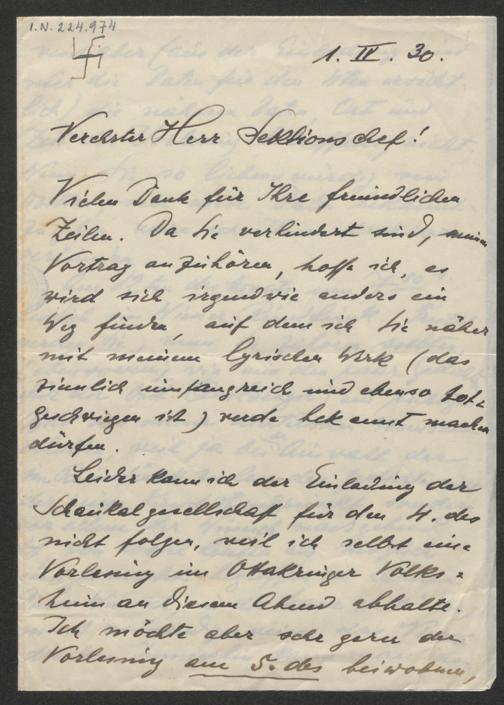 I.N. 224.974
1. IV. 30.
Verehrter Herr Sektionschef!
Vielen Dank für Ihre freundlichen
Zeilen. Da Sie verhindert sind, meinen
Vortrag anzuhören, hoffe ich, es
wird sich irgendwie anders ein
Weg finden, auf dem ich Sie näher
mit meinem lyrischen Werk (das
ziemlich umfangreich und ebenso tot-
geschwiegen ist) werde bekannt machen
dürfen.
Leider kann ich der Einladung der
Schaukalgesellschaft für den 4. des
nicht folgen, weil ich selbst eine
Vorlesung im Ottakringer Volks-
heim an diesem Abend abhalte.
Ich möchte aber sehr gern der
Vorlesung am 5. des beiwohnen,